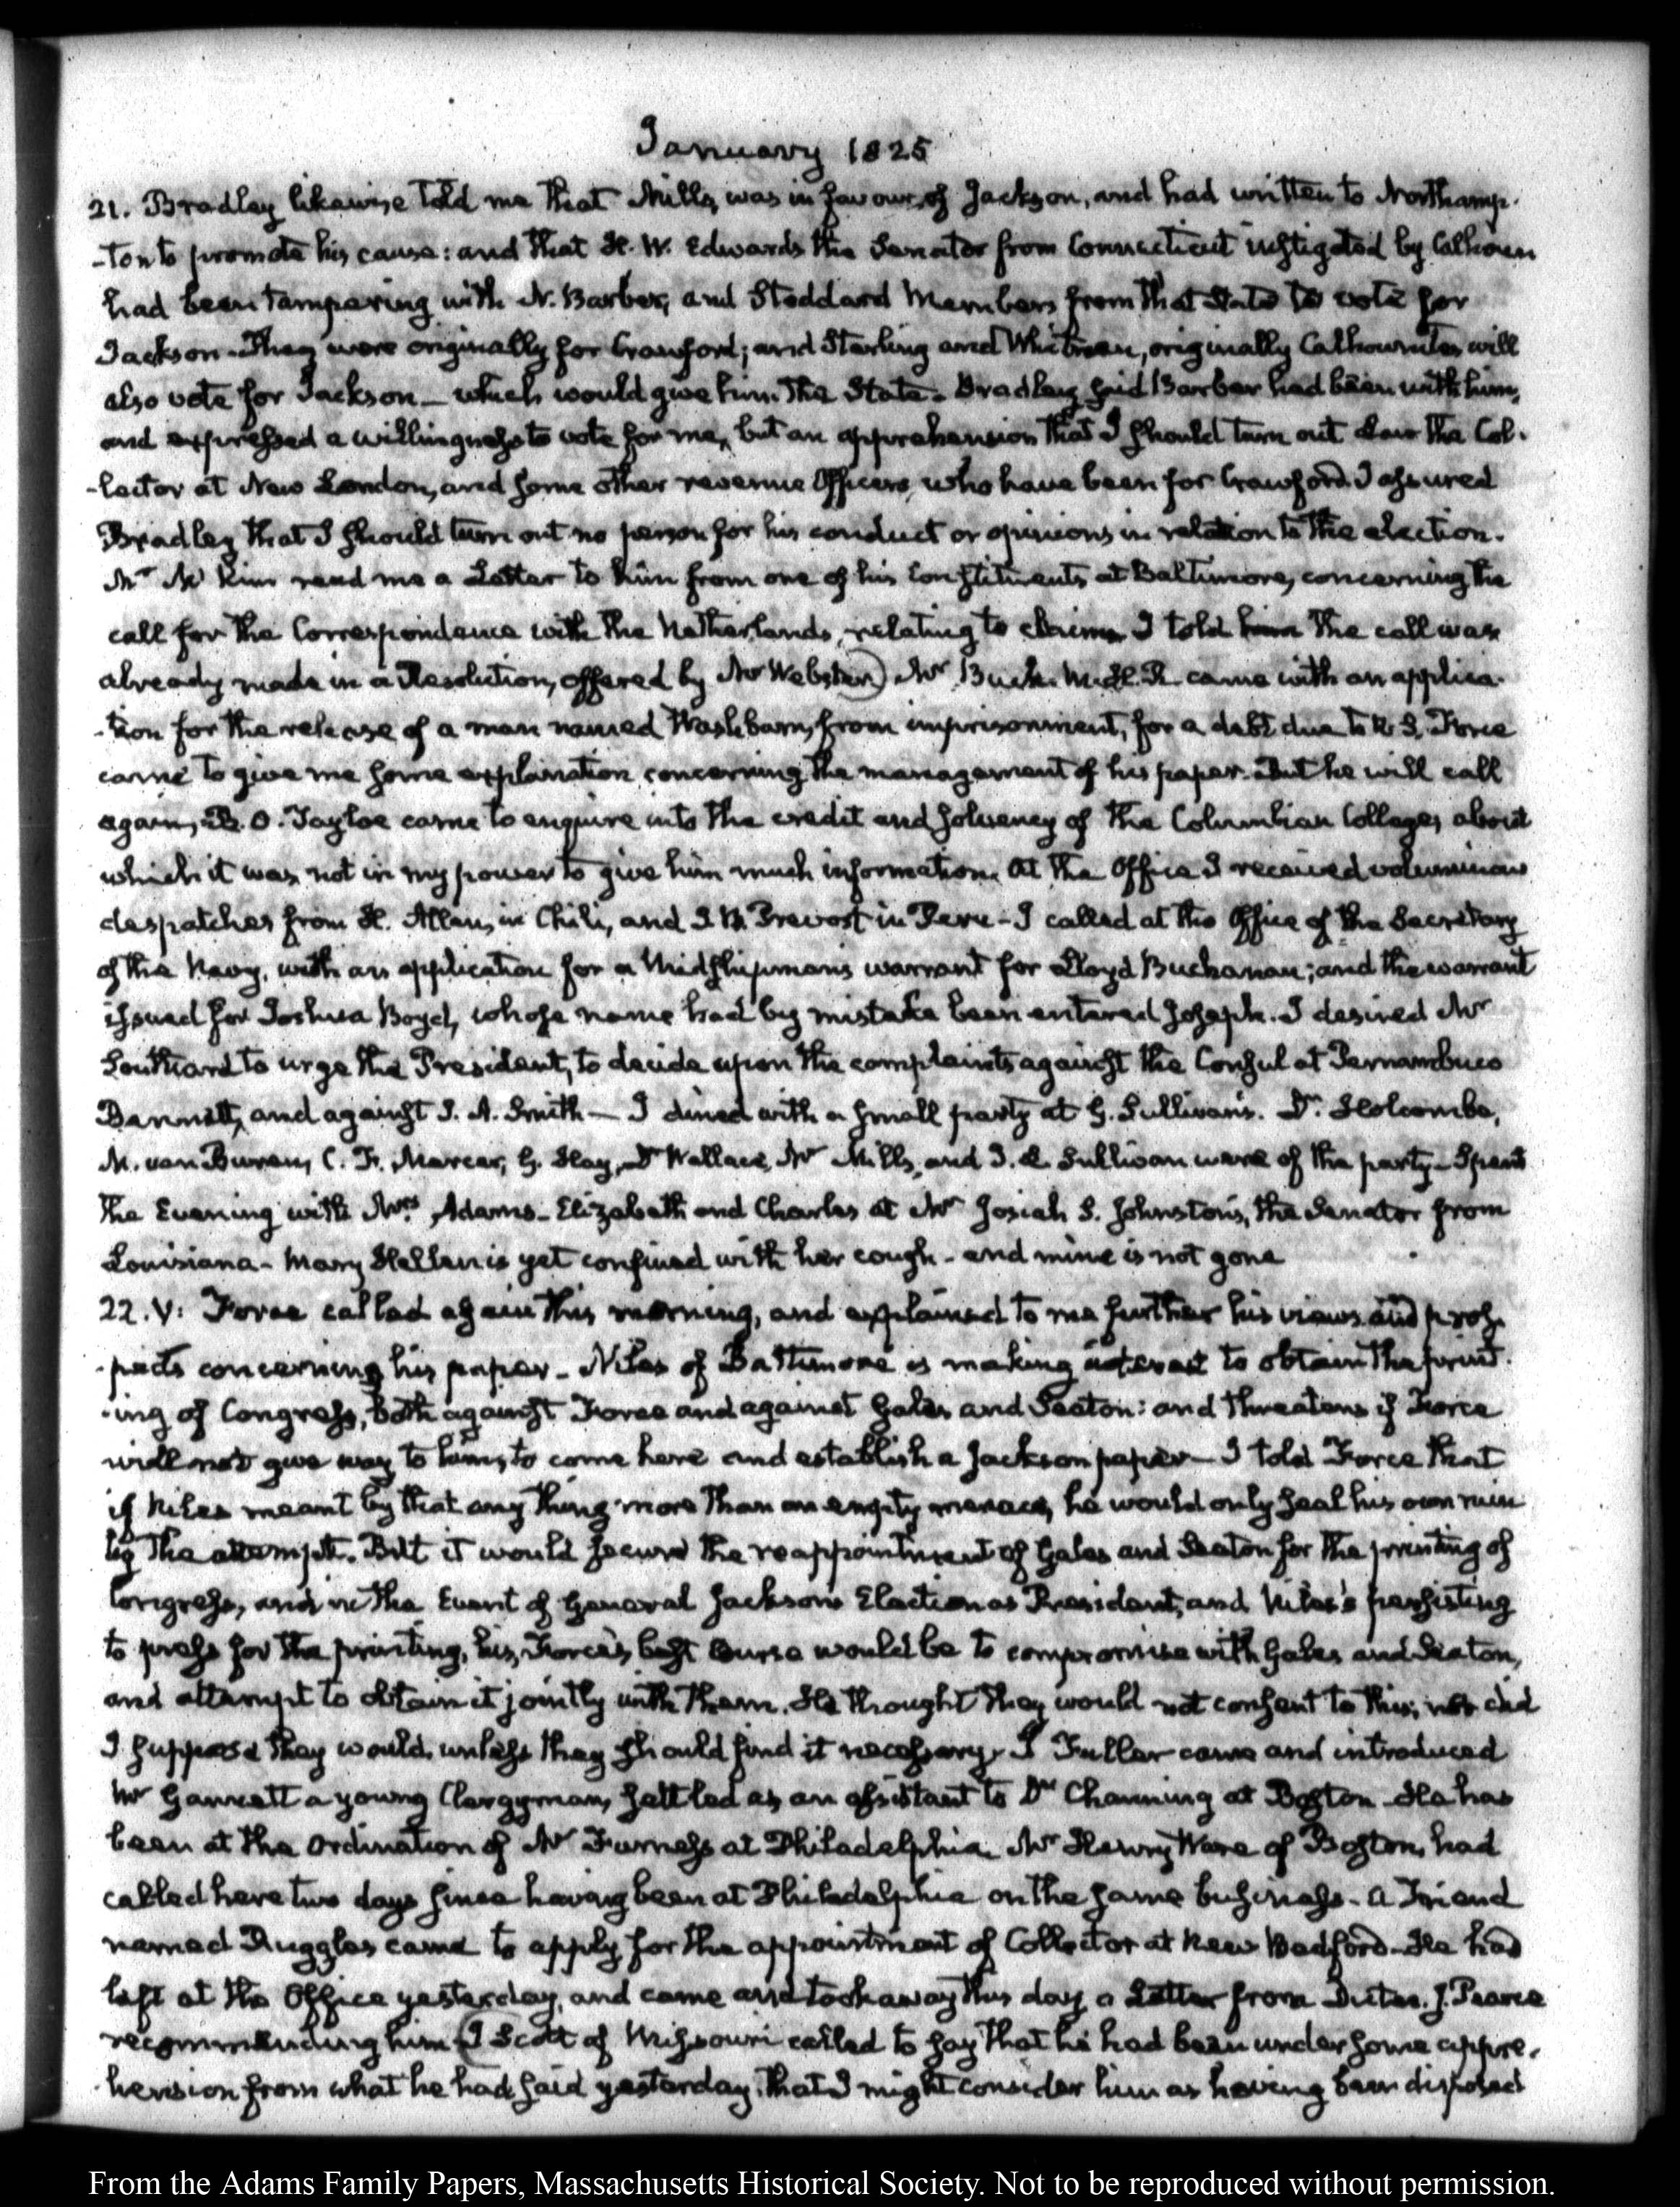 January 1825
21. Bradley likewise told me that Mills, was in favour of Jackson, and had written to Northamp-
-ton to promote his cause: and that H. W. Edwards the Senator from Connecticut instigated by Calhoun
had been tampering with N. Barber, and Stoddard Members from that State to vote for
Jackson. They were originally for Crawford; and Sterling and Whitman, originally Calhounites will
also vote for Jackson — which would give him the State. Bradley said Barber had been with him,
and expressed a willingness to vote for me, but an apprehension that I should turn out the Col-
-lector at New London, and some other revenue Officers, who have been for Crawford. I assured
Bradley that I should turn out no person for his conduct or opinions in relation to the election.
Mr McKim read me a Letter to him from one of his Constituents at Baltimore, concerning the
call for the Correspondence with the Netherlands, relating to claims I told him the call was
already made in a Resolution, offered by Mr Webster) Mr Buck. M.H.R. came with an applica-
-tion for the release of a man named Washburn, from imprisonment, for a debt due to U. S. Force
came to give me some explanation concerning the management of his paper. But he will call
again, B. O. Tayloe came to enquire into the credit and solvency of the Columbian College, about
which it was not in my power to give him much information. At the Office I received voluminous
despatches from H. Allen, in Chili, and J. B. Prevost in Peru - I called at the Office of the Secretary
of the Navy, with an application for a Midshipman's warrant for Lloyd Buchanan; and the warrant
issued for Joshua Boyd, whose name had by mistake been entered Joseph. I desired Mr
Southard to urge the President, to decide upon the complaints against the Consul at Pernambuco
Bennett, and against J. A. Smith — I dined with a small party at G. Sullivan's. Dr. Holcombe,
M. van Buren, C. F. Mercer, G. Hay, Dr Wallace, Mr Mills, and J. L. Sullivan were of the party - Spent
the Evening with Mrs Adams - Elizabeth and Charles at Mr Josiah S. Johnston's, the Senator from
Louisiana - Mary Hellen is yet confined with her cough - and mine is not gone
22. V: Force called again this morning, and explained to me further his views and pros-
-pects concerning his paper - Niles of Baltimore is making interest to obtain the print-
-ing of Congress, both against Force and against Gales and Seaton: and threatens if Force
will not give way to him, to come here and establish a Jackson paper - I told Force that
if Niles meant by that any thing more than an empty menace, he would only seal his own ruin
by the attempt. But it would secure the reappointment of Gales and Seaton for the printing of
Congress, and in the Event of General Jackson's Election as President, and Niles's persisting
to press for the printing, his, Force's, best Course would be to compromise with Gales and Seaton,
and attempt to obtain it jointly with them. He thought they would not consent to this; nor did
I suppose they would, unless they should find it necessary. T Fuller came and introduced
Mr Gannett a young Clergyman, settled as an assistant to Dr Channing at Boston - He has
been at the Ordination of Mr Furness at Philadelphia. Mr Henry Ware of Boston, had
called here two days since having been at Philadelphia on the same business - A Friend
named Ruggles came to apply for the appointment of Collector at New Bedford - He had
left at the Office yesterday, and came and took away this day a Letter from Dutee. J. Pearce
recommending him (J Scott of Missouri called to say that he had been under some appre-
-hension from what he had said yesterday, that I might consider him as having been disposed
From the Adams Family Papers, Massachusetts Historical Society. Not to be reproduced without permission.